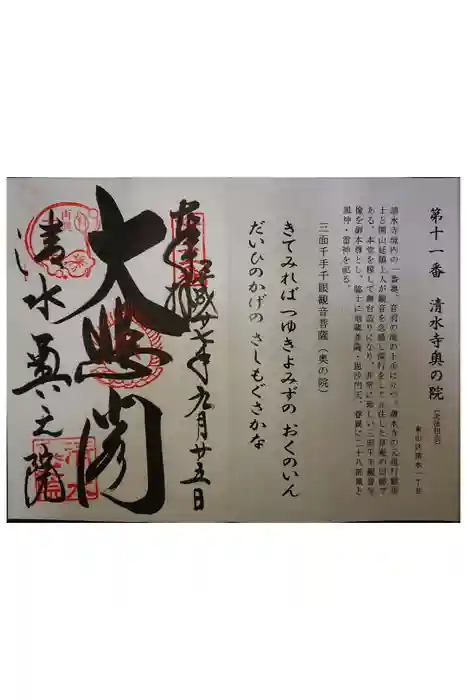 第十一番 清水寺奥の院
(北法相宗)
東山区清水一丁目
清水寺境内の一番奥、音羽の滝の上に立つ。清水寺の元祖行叡居
士と開山延鎮上人が観音を念誦し
ある。本堂と同じく舞台造りになり、非常に珍しい三面千手観音坐
像を御本尊とし、脇士に地蔵菩薩・毘沙門天、眷属に二十八部衆と
風神・雷神を祀る。
三面千手千眼観音菩薩(奥の院)
きてみればつゆきよみずの おくのいん
だいひのかげの さしもぐさかな
奉拝 平成廿七年九月廿五日
大悲閣
清水奥之院